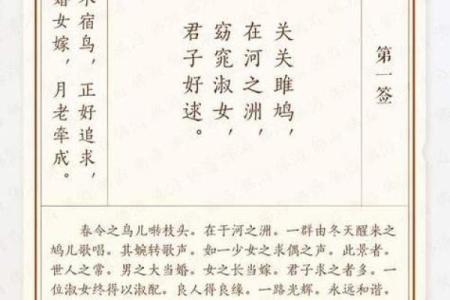 第一签
关关雎鸠，
在河之洲，
窈窕淑女，
君子好逑。
宿鸟，正好追求，
女嫁，月老牵成。
春令之鸟儿啭枝头。在干河之洲。一群由冬天醒来之
鸠儿歌唱。其婉转歌声。如一少女之求偶之声。此景者。
世人之常。男之大当婚。女之长当嫁。君子求之者多。一
位淑女终得以淑配。良人得良缘。一路光辉。永远和谐。